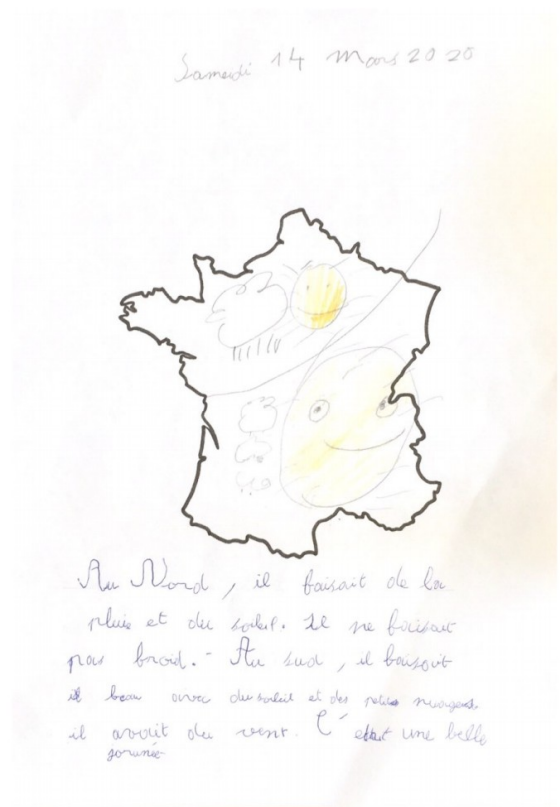 Samedi 14 Mars 2020
Au Nord, il faisait de la
pluie et du soleil. Il ne faisait
pas froid. - Au sud, il faisait
il beau avec du soleil et des petits nuages
il avait du vent. C'était une belle
journée